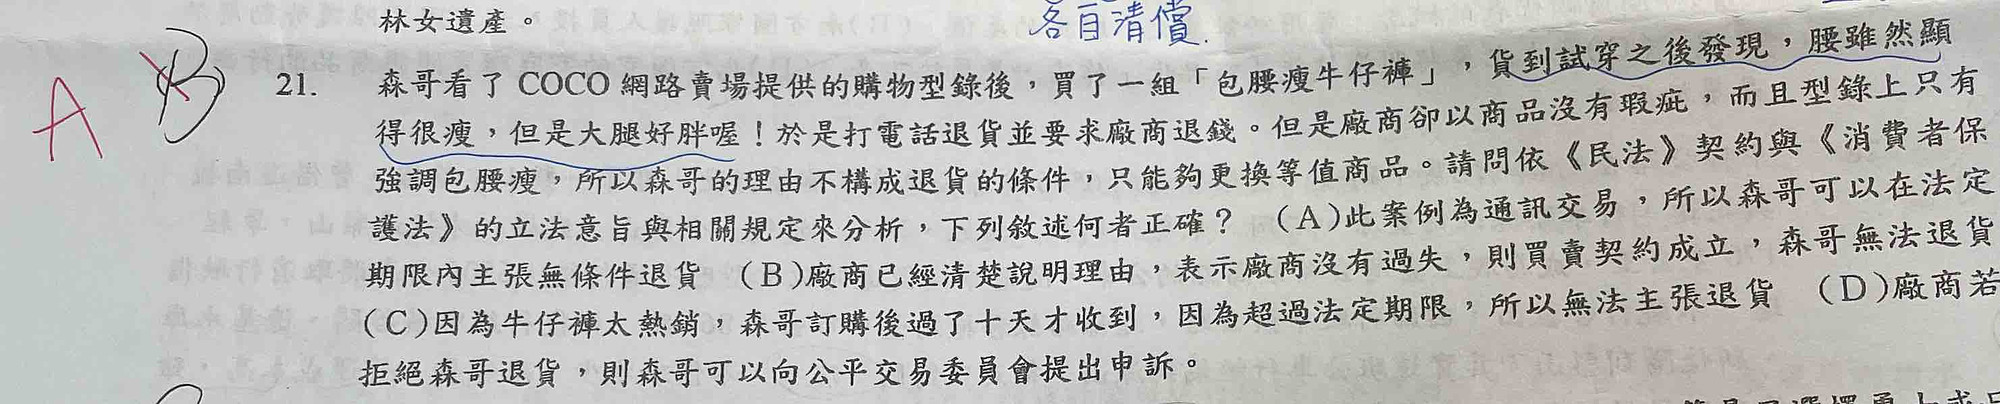 林女遺產。
各自清償.
A (B) 21. 森哥看了 COCO 網路賣場提供的購物型錄後,買了一組「包腰瘦牛仔褲」,貨到試穿之後發現,腰雖然顯
得很瘦,但是大腿好胖喔!於是打電話退貨並要求廠商退錢。但是廠商卻以商品沒有瑕疵,而且型錄上只有
強調包腰瘦,所以森哥的理由不構成退貨的條件,只能夠更換等值商品。請問依《民法》契約與《消費者保
護法》的立法意旨與相關規定來分析,下列敘述何者正確? (A)此案例為通訊交易,所以森哥可以在法定
期限內主張無條件退貨 (B)廠商已經清楚說明理由,表示廠商沒有過失,則買賣契約成立,森哥無法退貨
(C)因為牛仔褲太熱銷,森哥訂購後過了十天才收到,因為超過法定期限,所以無法主張退貨 (D)廠商若
拒絕森哥退貨,則森哥可以向公平交易委員會提出申訴。